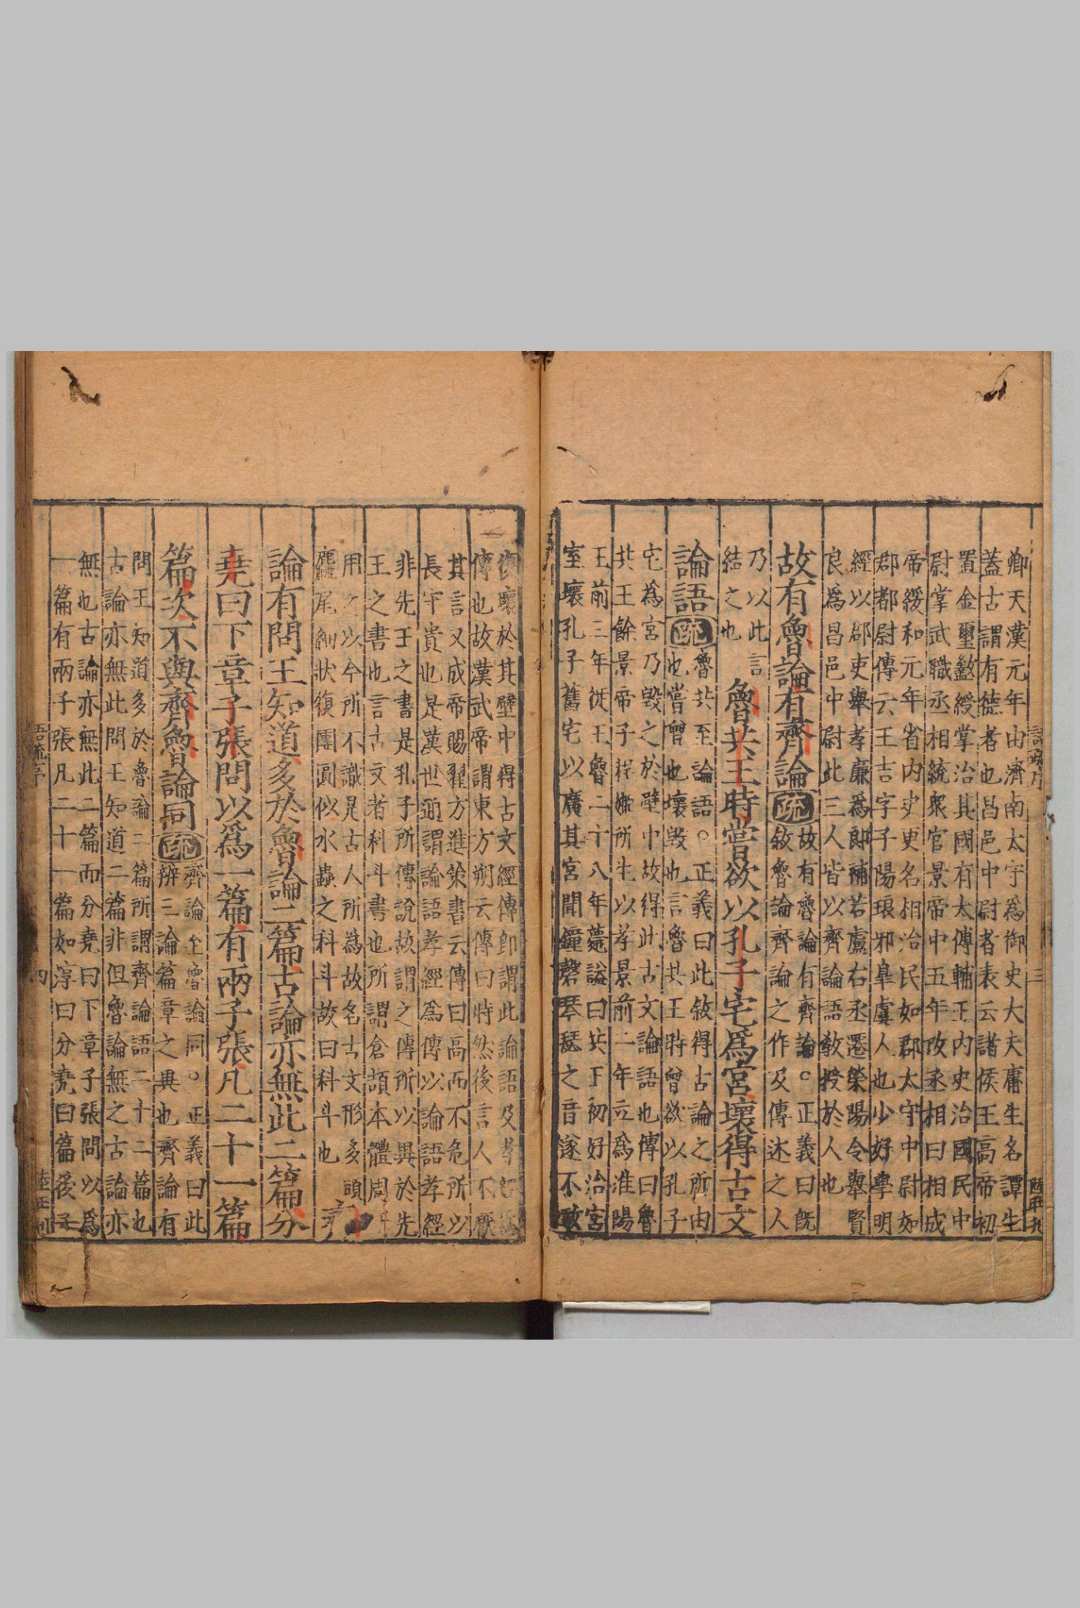 卿天漢元年由濟南太守爲御史大夫庸生名譚生
蓋古謂有德者也昌邑中尉者表云諸侯王高帝初
置金璽盭綬掌治其國有太傅輔王內史治國民中
尉掌武職丞相統衆官景帝中五年改丞相曰相成
帝綏和元年省內史史名相治民如郡太守中尉如
郡都尉傳云王吉字子陽琅邪皐虞人也少好學明
經以郡吏舉孝廉爲郎補若盧右丞遷榮陽令舉賢
良爲昌邑中尉此三人皆以齊論語教授於人也
故有魯論有齊論疏
故有魯論有齊論○正義曰旣
敘魯論齊論之作及傳述之人
乃以此言
結之也
魯共王時嘗欲以孔子宅爲宮壞得古文
論語疏
魯共至論語○正義曰此敘得古論之所由
也嘗曾也壞毀也言魯共王時曾欲以孔子
宅爲宮乃毀之於壁中故得此古文論語也傳曰魯
共王餘景帝子程姬所生以孝景前二年立爲淮陽
王前三年徙王魯二十八年薨謚曰共王初好治宮
室壞孔子舊宅以廣其宮聞鐘磬琴瑟之音遂不敢
復壞於其壁中得古文經傳卽謂此論語及孝經
傳也故漢武帝謂東方朔云傳曰時然後言人不厭
其言又成帝賜翟方進策書云傳曰高而不危所以
長守貴也是漢世通謂論語孝經爲傳以論語孝經
非先王之書是孔子所傳說故謂之傳所以異於先
王之書也言古文者科斗書也所謂倉頡本體周
用之以今所不識是古人所爲故名古文形多頭
麤尾細狀復團圓似水蟲之科斗故曰科斗也
論有問王知道多於魯論二篇古論亦無此二篇分
堯曰下章子張問以爲一篇有兩子張凡二十一篇
篇次不與齊魯論同疏
齊論至魯論同○正義曰此
辨三論篇章之異也齊論有
問王知道多於魯論二篇所謂齊論語二十二篇也
古論亦無此問王知道二篇非但魯論無之古論亦
無也古論亦無此二篇而分堯曰下章子張問以爲
一篇有兩子張凡二十一篇如淳曰分堯曰篇後子
四